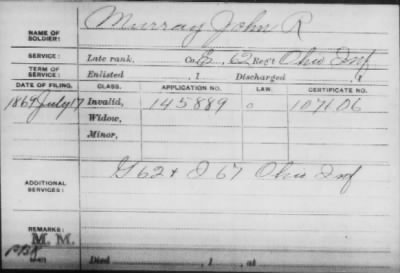 NAME OF SOLDIER: Murray John R
SERVICE: Late rank, Co. G, 62 Reg't Ohio Inf
TERM OF SERVICE: Enlisted , 1 Discharged , 1
DATE OF FILING. CLASS. APPLICATION NO. LAW. CERTIFICATE NO.
1869 July 17 Invalid, 145889 107106
Widow,
Minor,
ADDITIONAL SERVICES: G 62 + D 67 Ohio Inf
REMARKS:
M. M.
Died , 1 , at